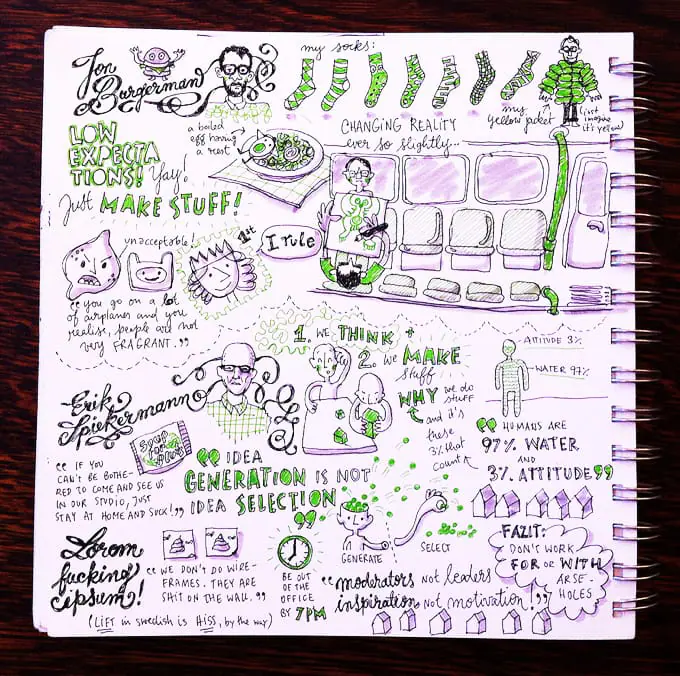 Jon
Burgerman
my socks:
my
yellow jacket
(just
imagine
it's yellow)
LOW
EXPECTA
TIONS! Yay!
Just MAKE STUFF!
a boiled
egg having
a rest
CHANGING REALITY
ever so slightly...
unacceptable!
1st
I rule
"you go on a lot
of airplanes and you
realise, people are not
very FRAGRANT."
1. WE THINK +
2. WE MAKE
stuff
WHY we do
stuff
and it's
these
3% that
count
ATTITUDE 3%
WATER 97%
"HUMANS ARE
97% WATER
AND
3% ATTITUDE"
Erik
Spiekermann
"IF YOU
CAN'T BE BOTHE-
RED TO COME AND SEE US
IN OUR STUDIO, JUST
STAY AT HOME AND SUCK!"
"IDEA
GENERATION IS NOT
IDEA SELECTION"
GENERATE
SELECT
Lorom
fucking
ipsum!
"WE DON'T DO WIRE-
FRAMES. THEY ARE
SHIT ON THE WALL."
(LIFT in swedish is HISS, by the way)
BE OUT
OF THE
OFFICE
BY 7PM
"moderators not leaders
inspiration not motivation!"
FAZIT:
DON'T WORK
FOR OR WITH
ARSE-
HOLES